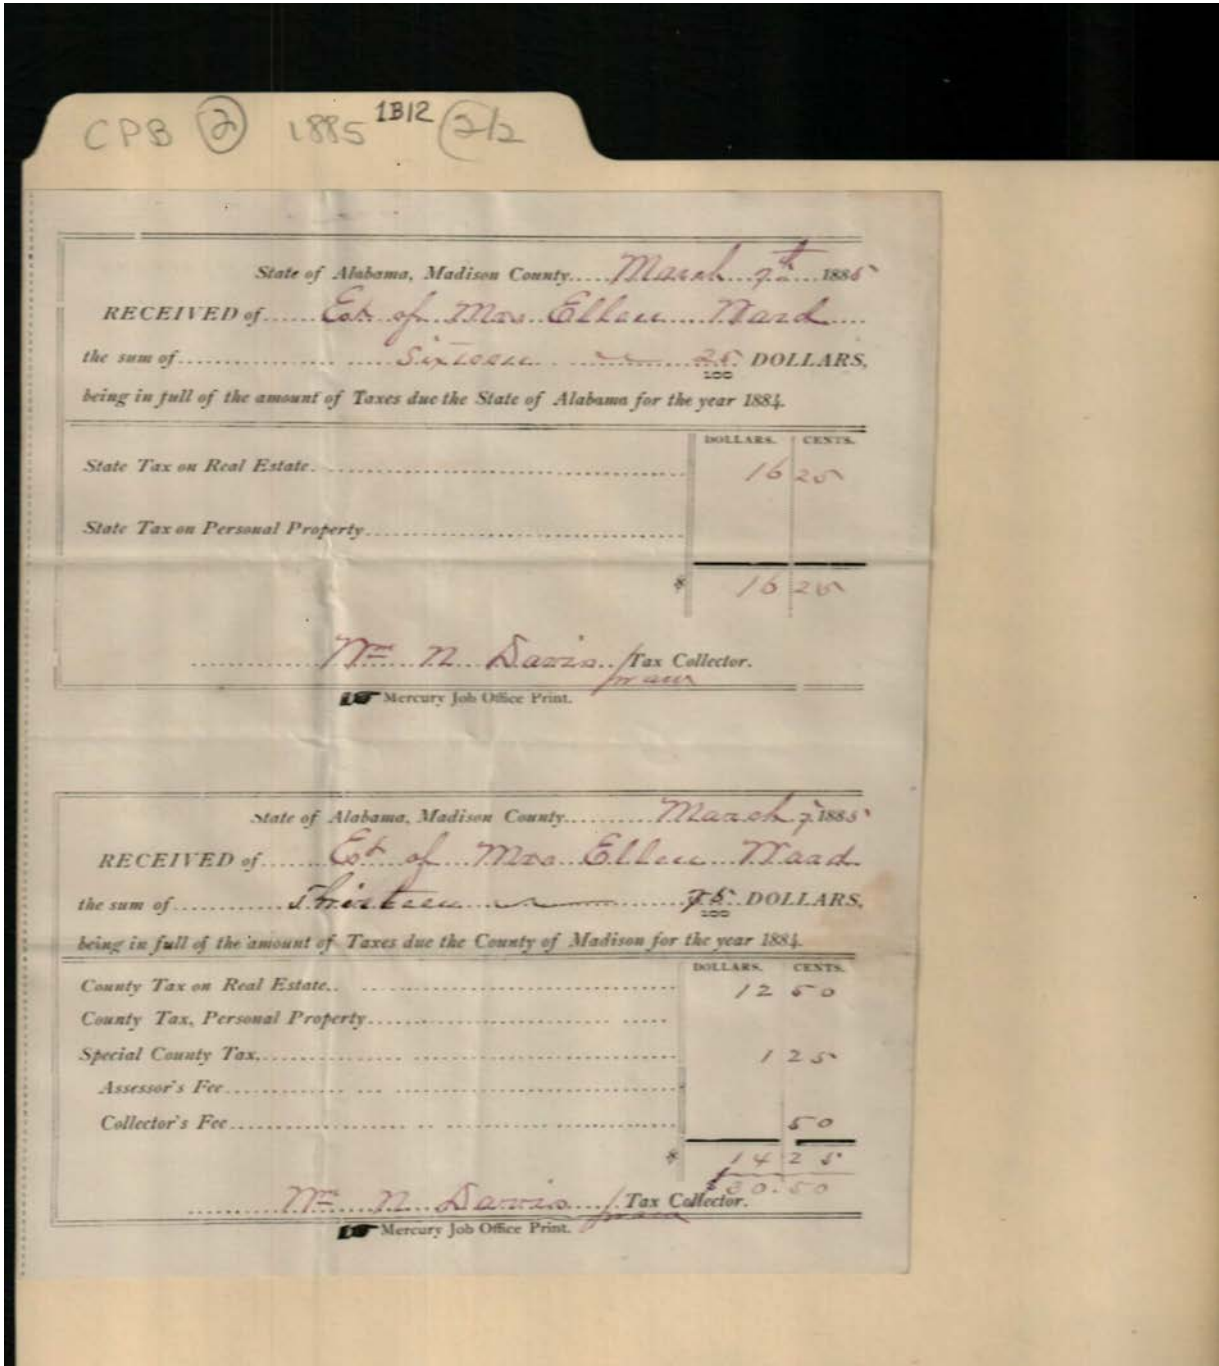 CPB 2 1885 1B12 2/2
State of Alabama, Madison County..... March 7th 1885
RECEIVED of...... Est of Mrs Ellen Ward
the sum of............ Sixteen 25/100 DOLLARS,
being in full of the amount of Taxes due the State of Alabama for the year 1884.
DOLLARS. CENTS.
State Tax on Real Estate. 16 25
State Tax on Personal Property
$ 16 25
Wm N Davis Tax Collector.
Mercury Job Office Print.
State of Alabama, Madison County.......... March 7 1885
RECEIVED of...... Est of Mrs Ellen Ward
the sum of............ Thirteen 75/100 DOLLARS,
being in full of the amount of Taxes due the County of Madison for the year 1884.
DOLLARS. CENTS.
County Tax on Real Estate.. 12 50
County Tax, Personal Property
Special County Tax, 1 25
Assessor's Fee
Collector's Fee 50
$ 14 25
$30.50
Wm N Davis Tax Collector.
Mercury Job Office Print.